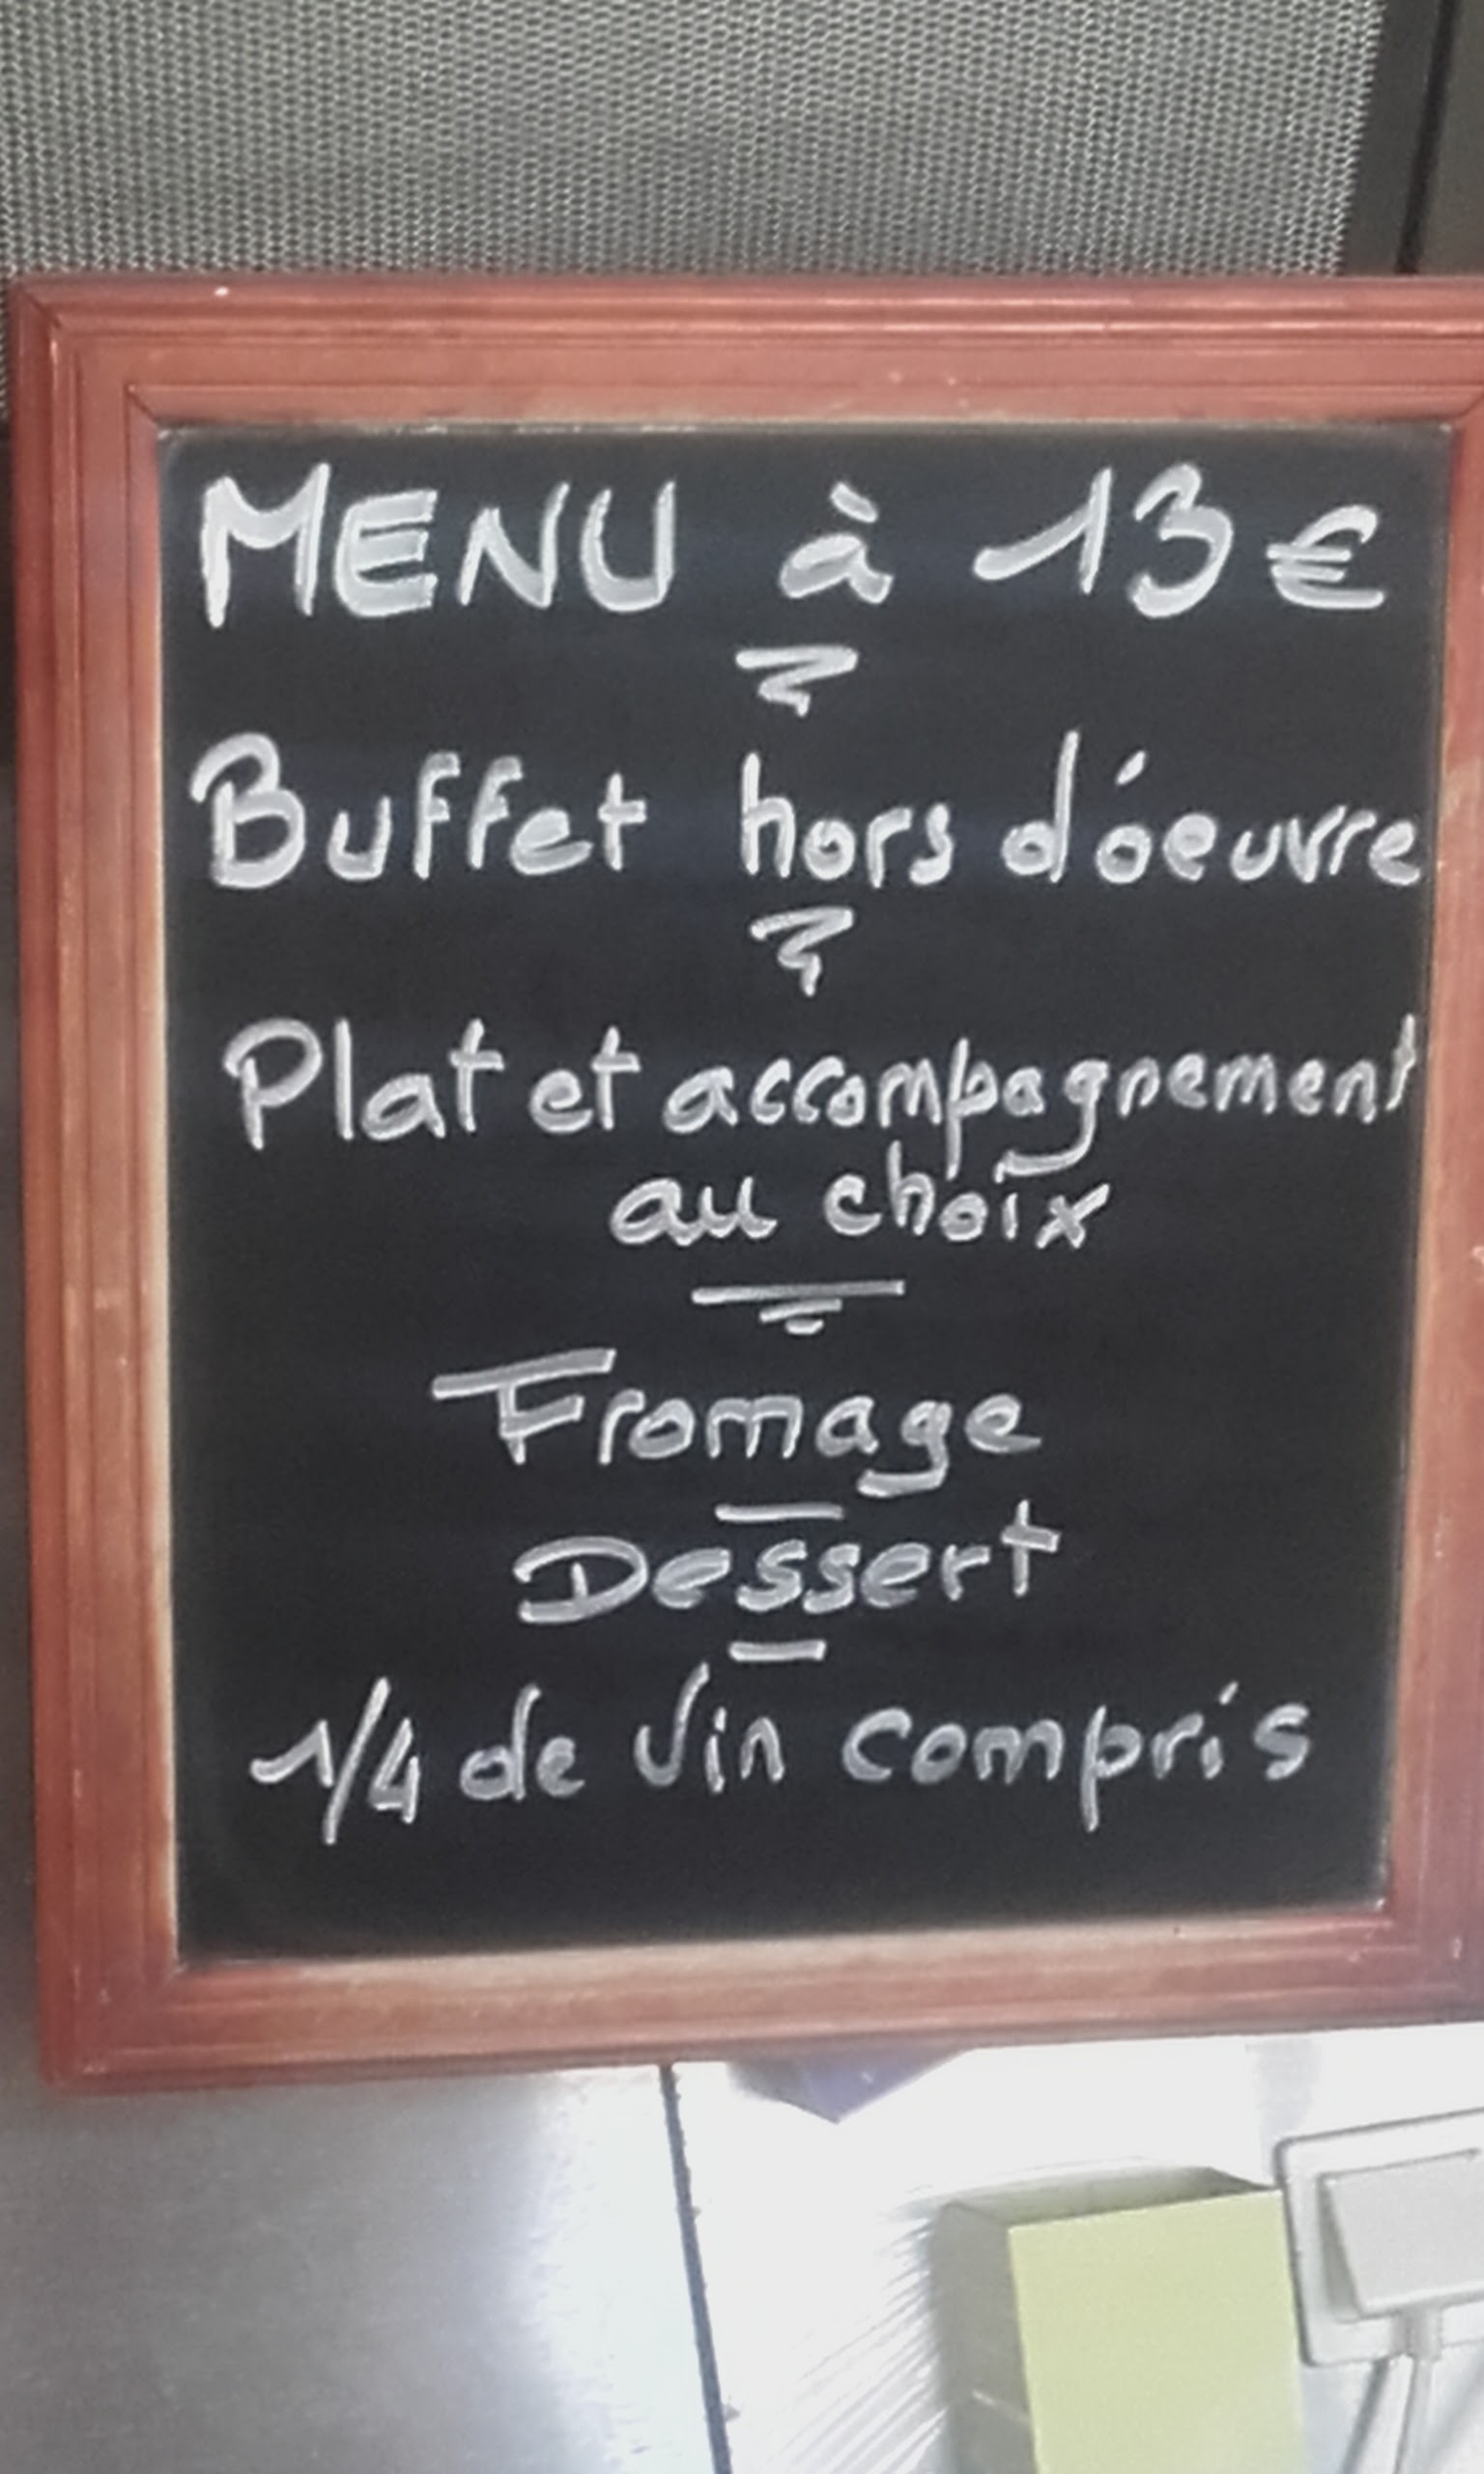 MENU à 13€
Buffet hors d'oeuvre
Plat et accompagnement
au choix
Fromage
Dessert
1/4 de Vin compris